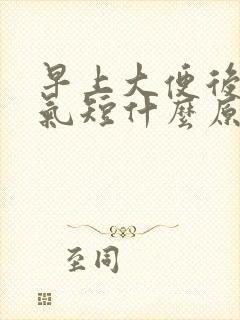 早上大便後
氣短什麼原
至同